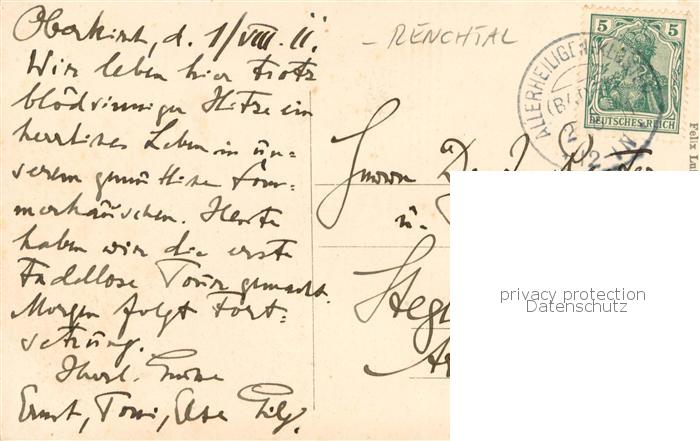 Oberkirch, d. 1/VIII. 11.
Wir leben hier trotz
blödsinniger Hitze ein
herrliches Leben in un-
serem gemütlichen Som-
merhäuschen. Heute
haben wir die erste
tadellose Tour gemacht.
Morgen folgt Fort-
setzung.
Herzl. Grüsse
Ernst, Toni, Else
- RENCHTAL
5 5
DEUTSCHES REICH
ALLERHEILIGEN
Herrn
u.
Steg
Felix
privacy protection
Datenschutz